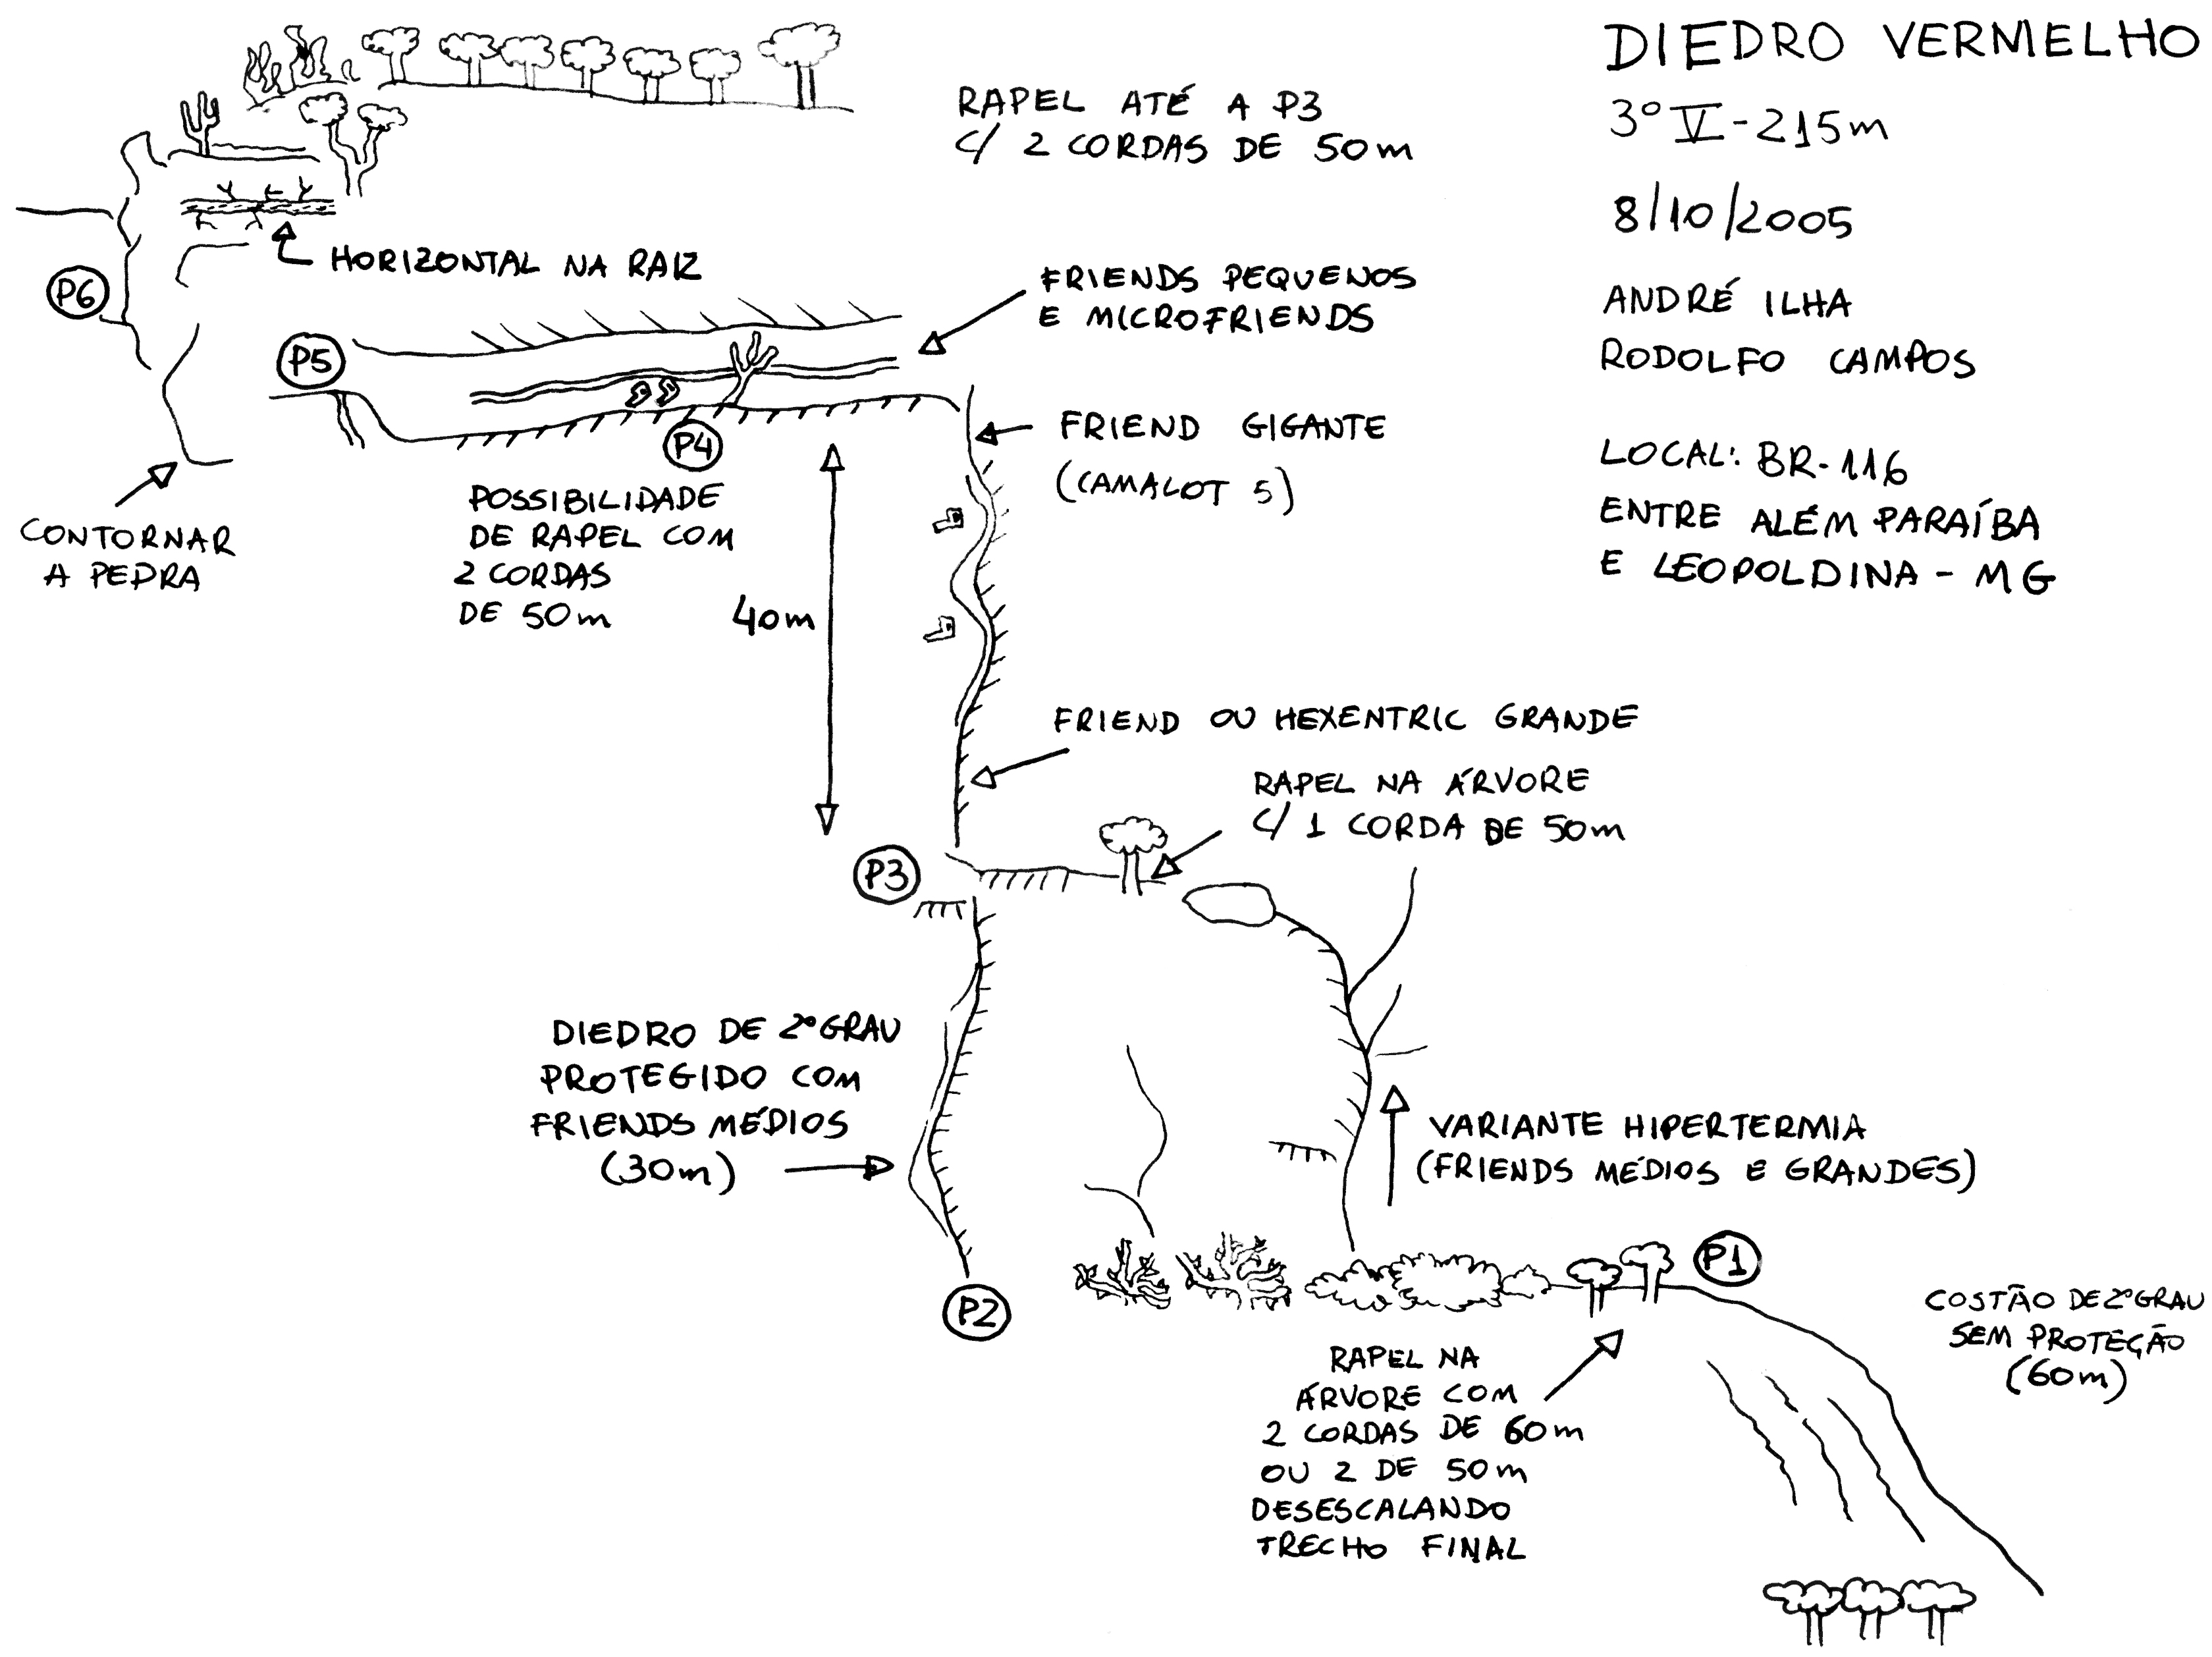 DIEDRO VERMELHO
3º V - 215m
8/10/2005
ANDRÉ ILHA
RODOLFO CAMPOS
LOCAL: BR-116
ENTRE ALÉM PARAÍBA
E LEOPOLDINA - MG
RAPEL ATÉ A P3
C/ 2 CORDAS DE 50m
HORIZONTAL NA RAIZ
P6
FRIENDS PEQUENOS
E MICROFRIENDS
P5
FRIEND GIGANTE
(CAMALOT 5)
P4
CONTORNAR
A PEDRA
POSSIBILIDADE
DE RAPEL COM
2 CORDAS
DE 50m
40m
FRIEND OU HEXENTRIC GRANDE
RAPEL NA ÁRVORE
C/ 1 CORDA DE 50m
P3
DIEDRO DE 2º GRAU
PROTEGIDO COM
FRIENDS MÉDIOS
(30m)
VARIANTE HIPERTERMIA
(FRIENDS MÉDIOS E GRANDES)
P2
P1
COSTÃO DE 2º GRAU
SEM PROTEÇÃO
(60m)
RAPEL NA
ÁRVORE COM
2 CORDAS DE 60m
OU 2 DE 50m
DESESCALANDO
TRECHO FINAL